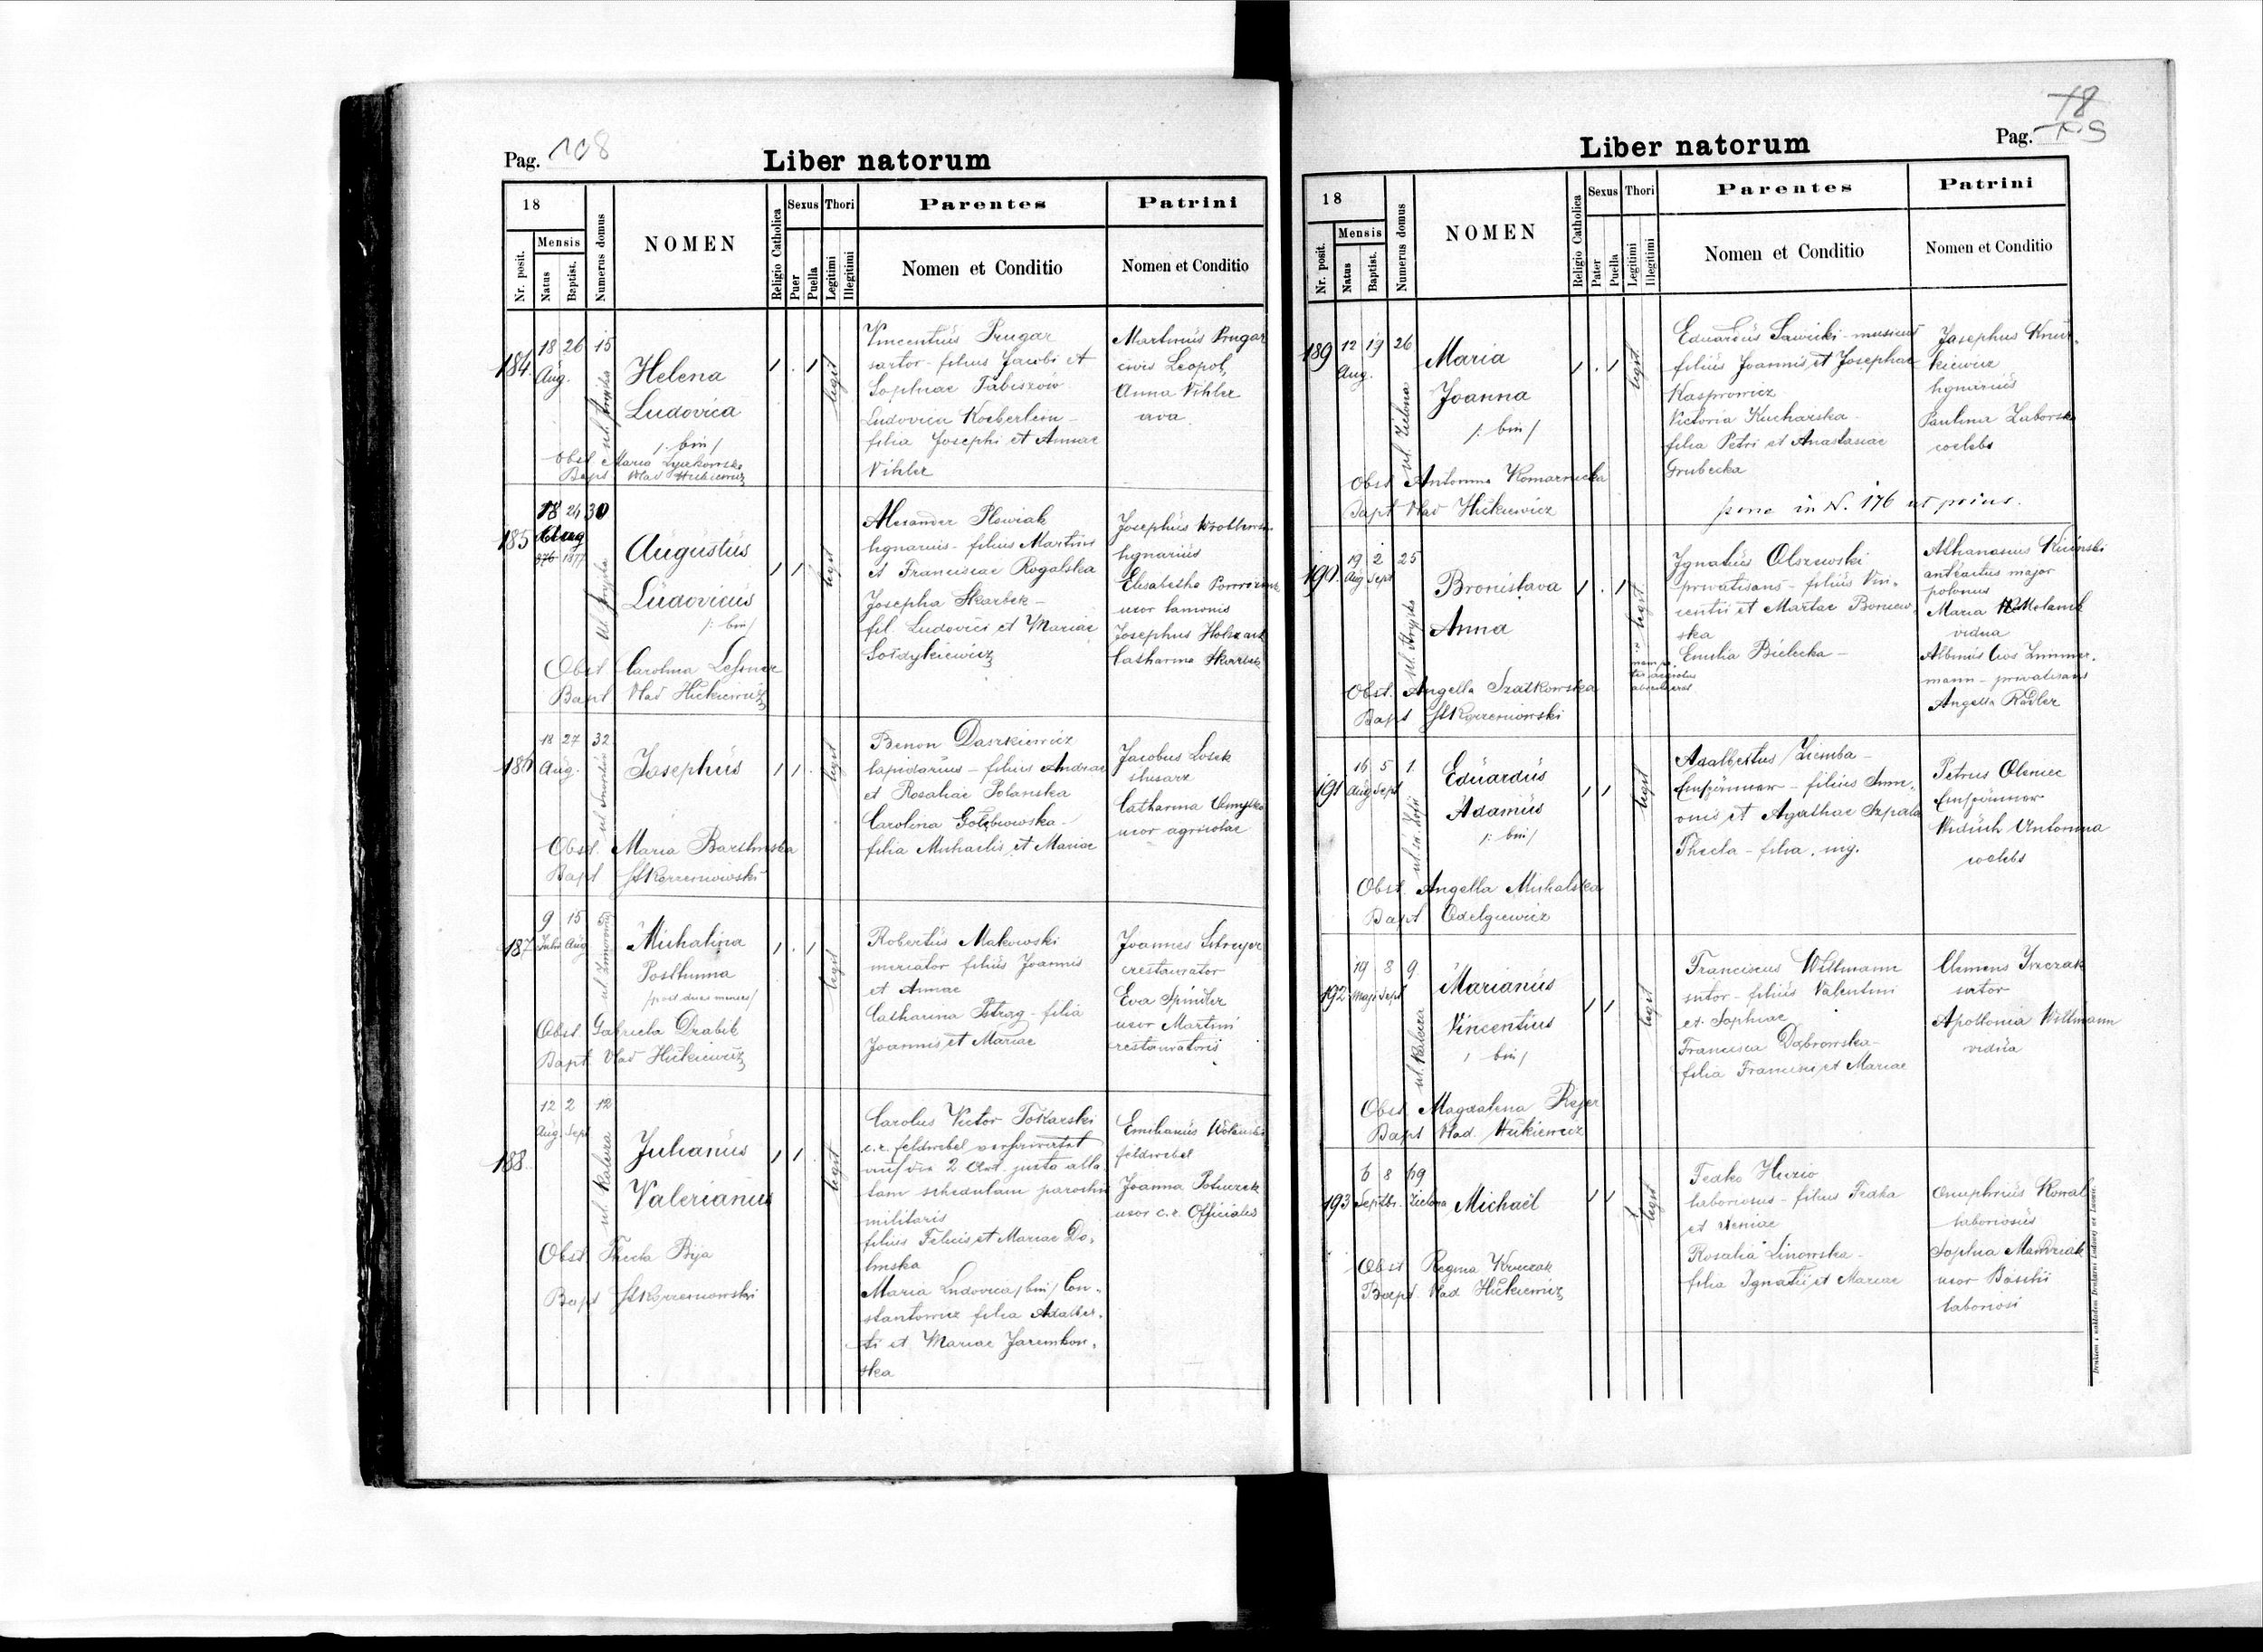 Pag. 108
Liber natorum
18
Nr. posit.
Mensis
Natus
Baptist.
Numerus domus
NOMEN
Religio Catholica
Sexus
Puer
Puella
Thori
Legitimi
Illegitimi
Parentes
Nomen et Conditio
Patrini
Nomen et Conditio
184.
18 26 15
Aug.
Helena
Ludovica
/: bin/
Obst. Maria
Bapt Vlad Hickiewicz
legit
Vincentius Prugar
sartor - filius Jacobi et
Sophiae Tabiszów
Ludovica Koeberlein -
filia Josephi et Annae
Vihler
Martinus Prugar
civis Leopol,
Anna Vihler
ava.
185
18 24 30
Aug
876 1877
Augustus
Ludovicus
/: bin/
Obst. Carolina Lessner
Bapt Vlad Hickiewicz
legit
Alexander Plewiak
lignarius - filius Martini
et Franciscae Rogalska
Josepha Skarbek -
fil. Ludovici et Mariae
Sołdykiewicz
Josephus
lignarius
Elisabetha
uxor lamonis
Josephus
Catharina Skarbek
186
18 27 32
Aug.
Josephus
Obst. Maria
Bapt St Korzeniowski
legit
Benon Daszkiewicz
lapidarius - filius Andreae
et Rosaliae Polanska
Carolina Gołębiowska -
filia Michaelis et Mariae
Jacobus Losik
slusarz
Catharina
uxor agricolae
187
9 15 5
Julii Aug
Michalina
Posthuma
/post duas menses/
Obst. Gabriela Drabik
Bapt. Vlad Hickiewicz
legit
Robertus Makowski
mercator filius Joannis
et Annae
Catharina Pstrag - filia
Joannis et Mariae
Joannes Schreyer
restaurator
Eva Spindler
uxor Martini
restauratoris
188.
12 2 12
Aug. Sept
ul. Kalecza
Julianus
Valerianus
Obst Thecla Bija
Bapt St Korzeniowski
legit
Carolus Victor Tokarski
c.r. feldwebel verheiratet
auf die 2 Art. juxta alla,
tam schedulam parochi
militaris
filius Felicis et Mariae Do,
linska
Maria Ludovica /bin/ Con,
stantowicz filia Adalber,
ti et Mariae Jaremkow,
ska
Emilianus Wolanski
feldwebel
Joanna
uxor c.r. Officialis
18
Pag. 109
Liber natorum
18
Nr. posit.
Mensis
Natus
Baptist.
Numerus domus
NOMEN
Religio Catholica
Sexus
Pater
Puella
Thori
Legitimi
Illegitimi
Parentes
Nomen et Conditio
Patrini
Nomen et Conditio
189
12 19 26
Aug.
ul. Zielona
Maria
Joanna
/: bin/
Obst Antonina Komarnicka
Bapt Vlad Hickiewicz
legit
Eduardus Sawicki - musicus
filius Joannis et Josephae
Kasprowicz
Victoria Kucharska -
filia Petri et Anastasiae
Grubecka
pone in N. 176 ut prius.
Josephus
kiewicz
lignarius
Paulina Zaborska
coelebs
190.
19 2 25
Aug Sept
Bronislava
Anna
Obst. Angella Szatkowska
Bapt St Korzeniowski
legit
Ignatius Olszewski
privatisans - filius Vin,
centii et Martae Boniew,
ska
Emilia Bielecka -
Athanasius
major
polonus
Maria
vidua
Albinus
mann - privatisans
Angella Radler
191
16 5 1.
Aug Sept
Eduardus
Adamus
/: bin/
Obst Angella Michalska
Bapt Odelgiewicz
legit
Adalbertus Ziemba -
Einspänner - filius Sim,
onis et Agathae Szpala
Thecla - filia ing.
Petrus Oleniec
Einspänner
Widuch Antonina
coelebs
192
19 8 9.
Maji Sept
ul. Kalecza
Marianus
Vincentius
/ bin/
Obst Magdalena Rejer
Bapt Vlad. Hickiewicz
legit
Franciscus Willmann
sutor - filius Valentini
et Sophiae
Francisca Dąbrowska -
filia Francisci et Mariae
Clemens
sutor
Apollonia Willmann
vidua
193
6 8 69
Septbr. Zielona
Michaël
Obst Regina Kruczak
Bapt. Vlad Hickiewicz
legit
Fedko Hurio
laboriosus - filius Fedka
et Xeniae
Rosalia Linowska -
filia Ignatii et Mariae
Onuphrius Kowal
laboriosus
Sophia Mandziak
uxor Basilii
laboriosi
Drukiem i nakładem Drukarni Ludowej we Lwowie.